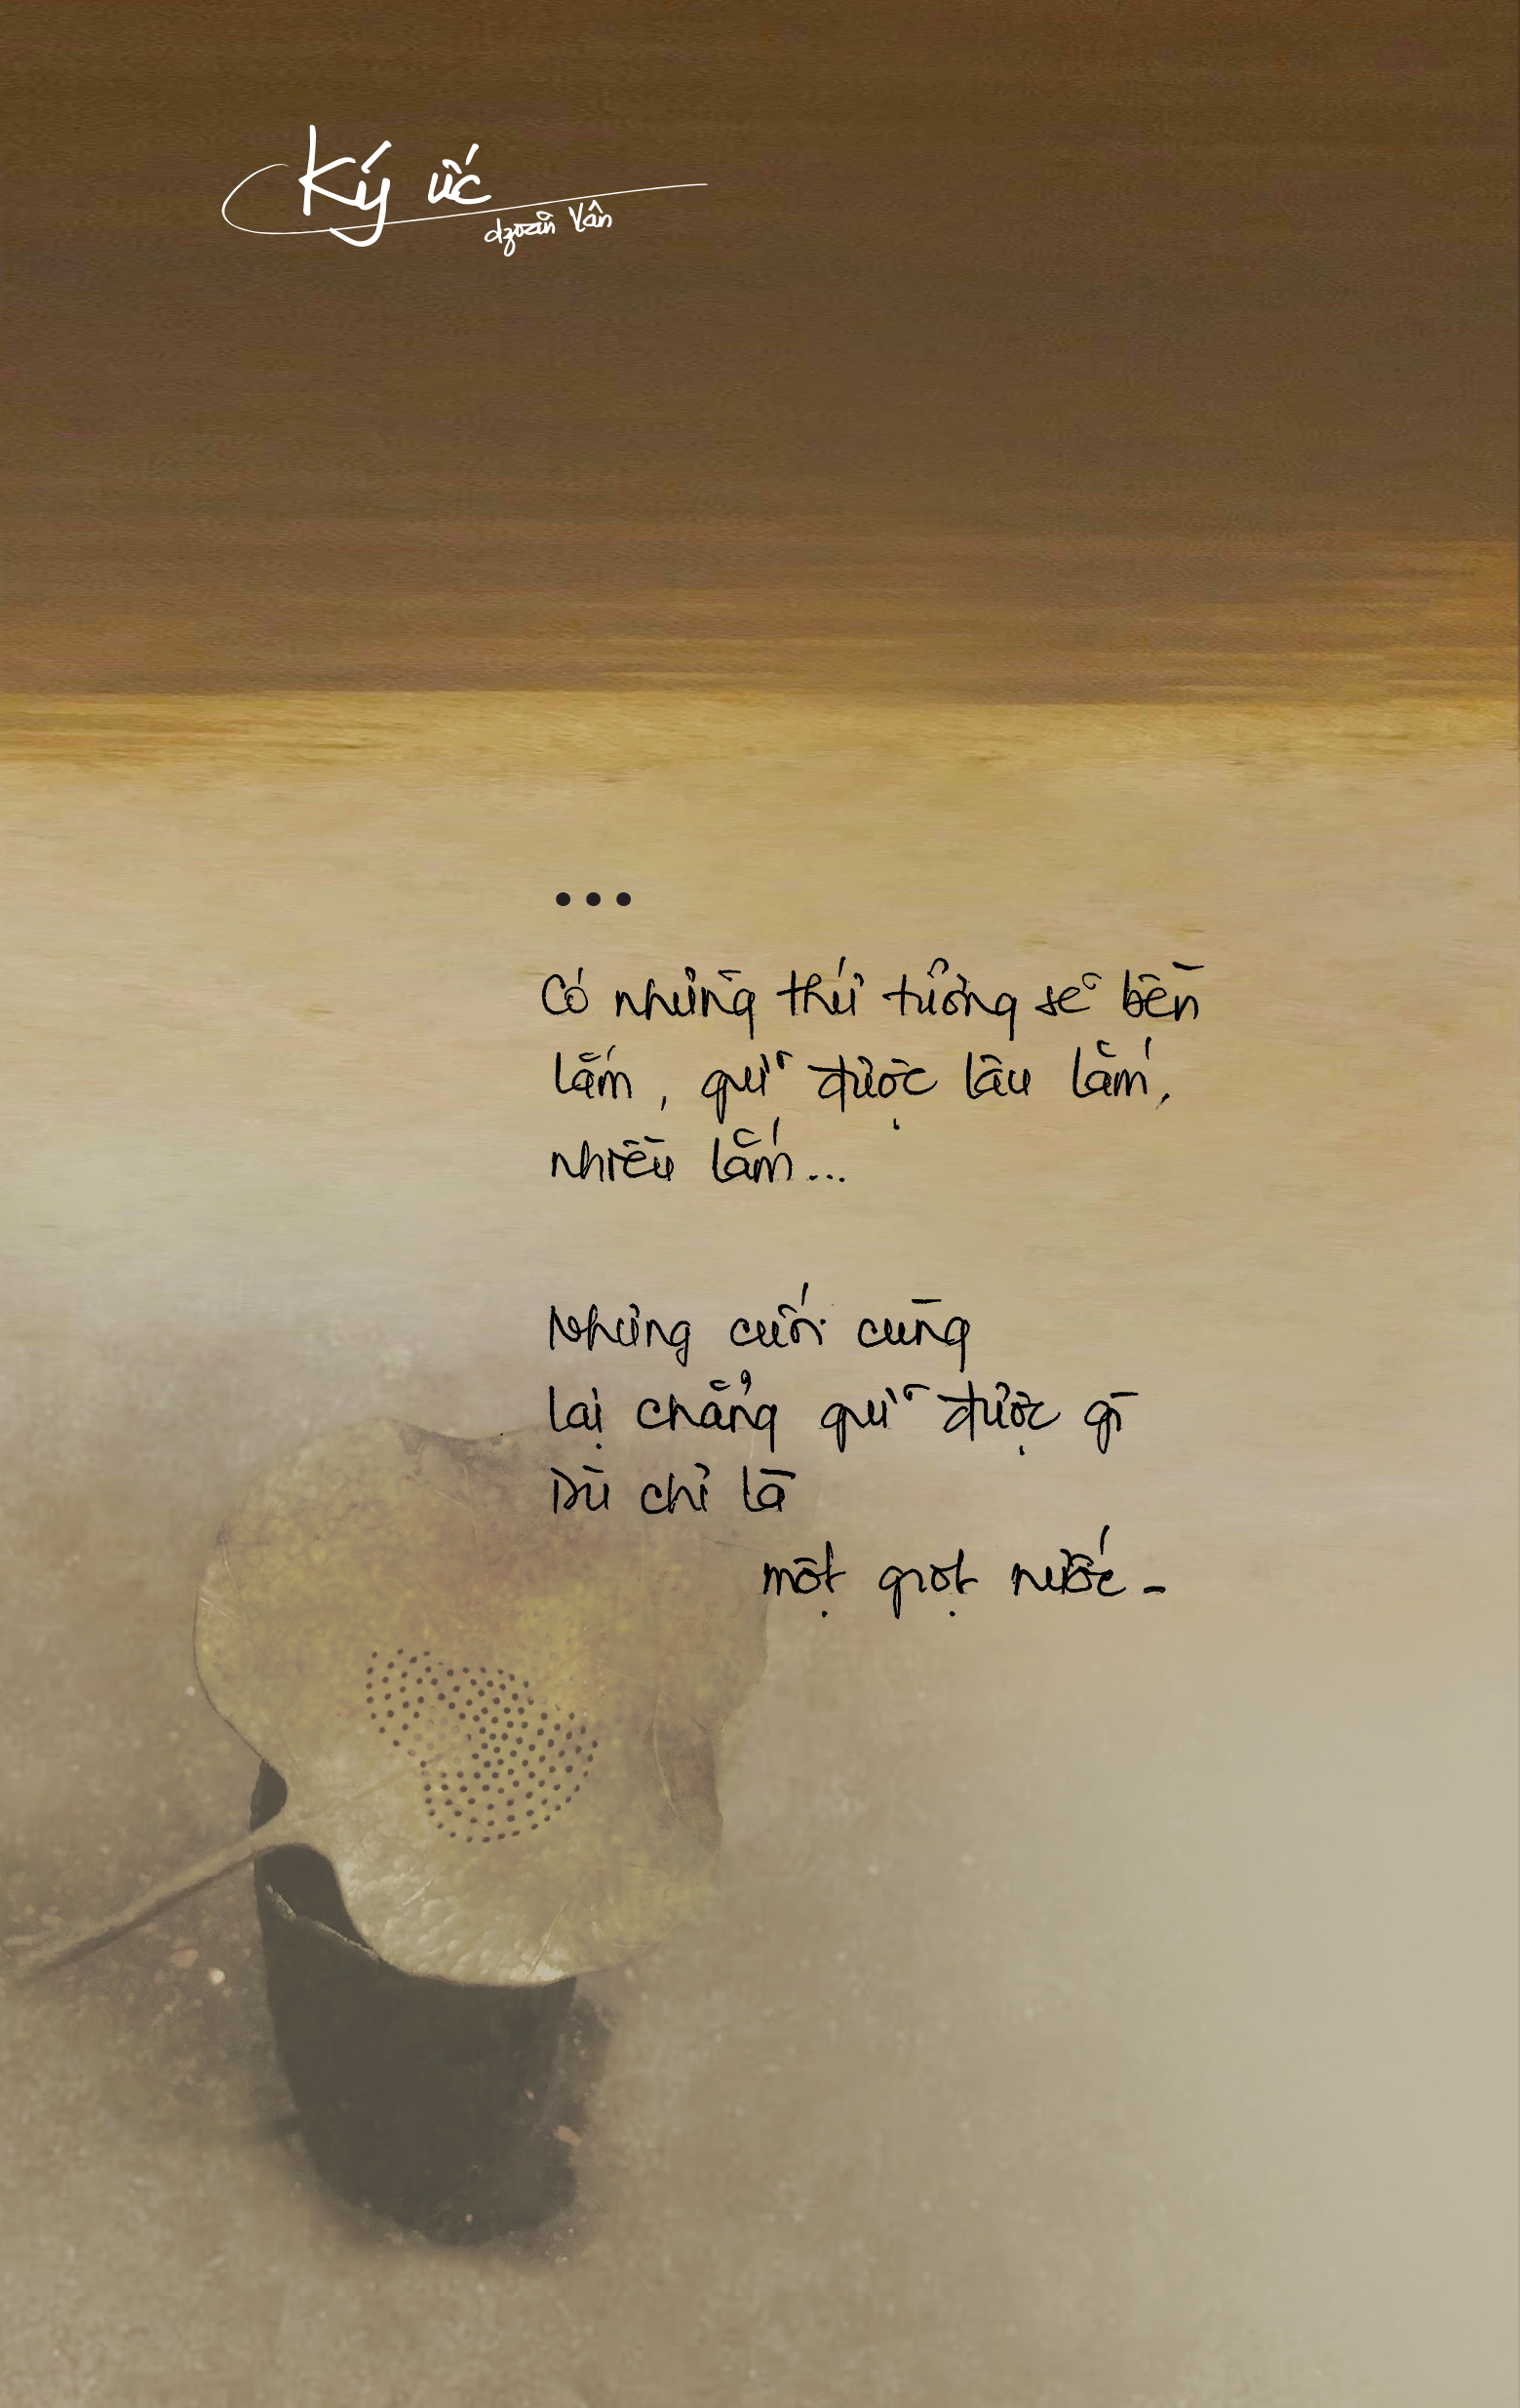 Ký ức
dzoãn Vân
...
Có những thứ tưởng sẽ bền
lắm, giữ được lâu lắm,
nhiều lắm...
Nhưng cuối cùng
lại chẳng giữ được gì
Dù chỉ là
một giọt nước -